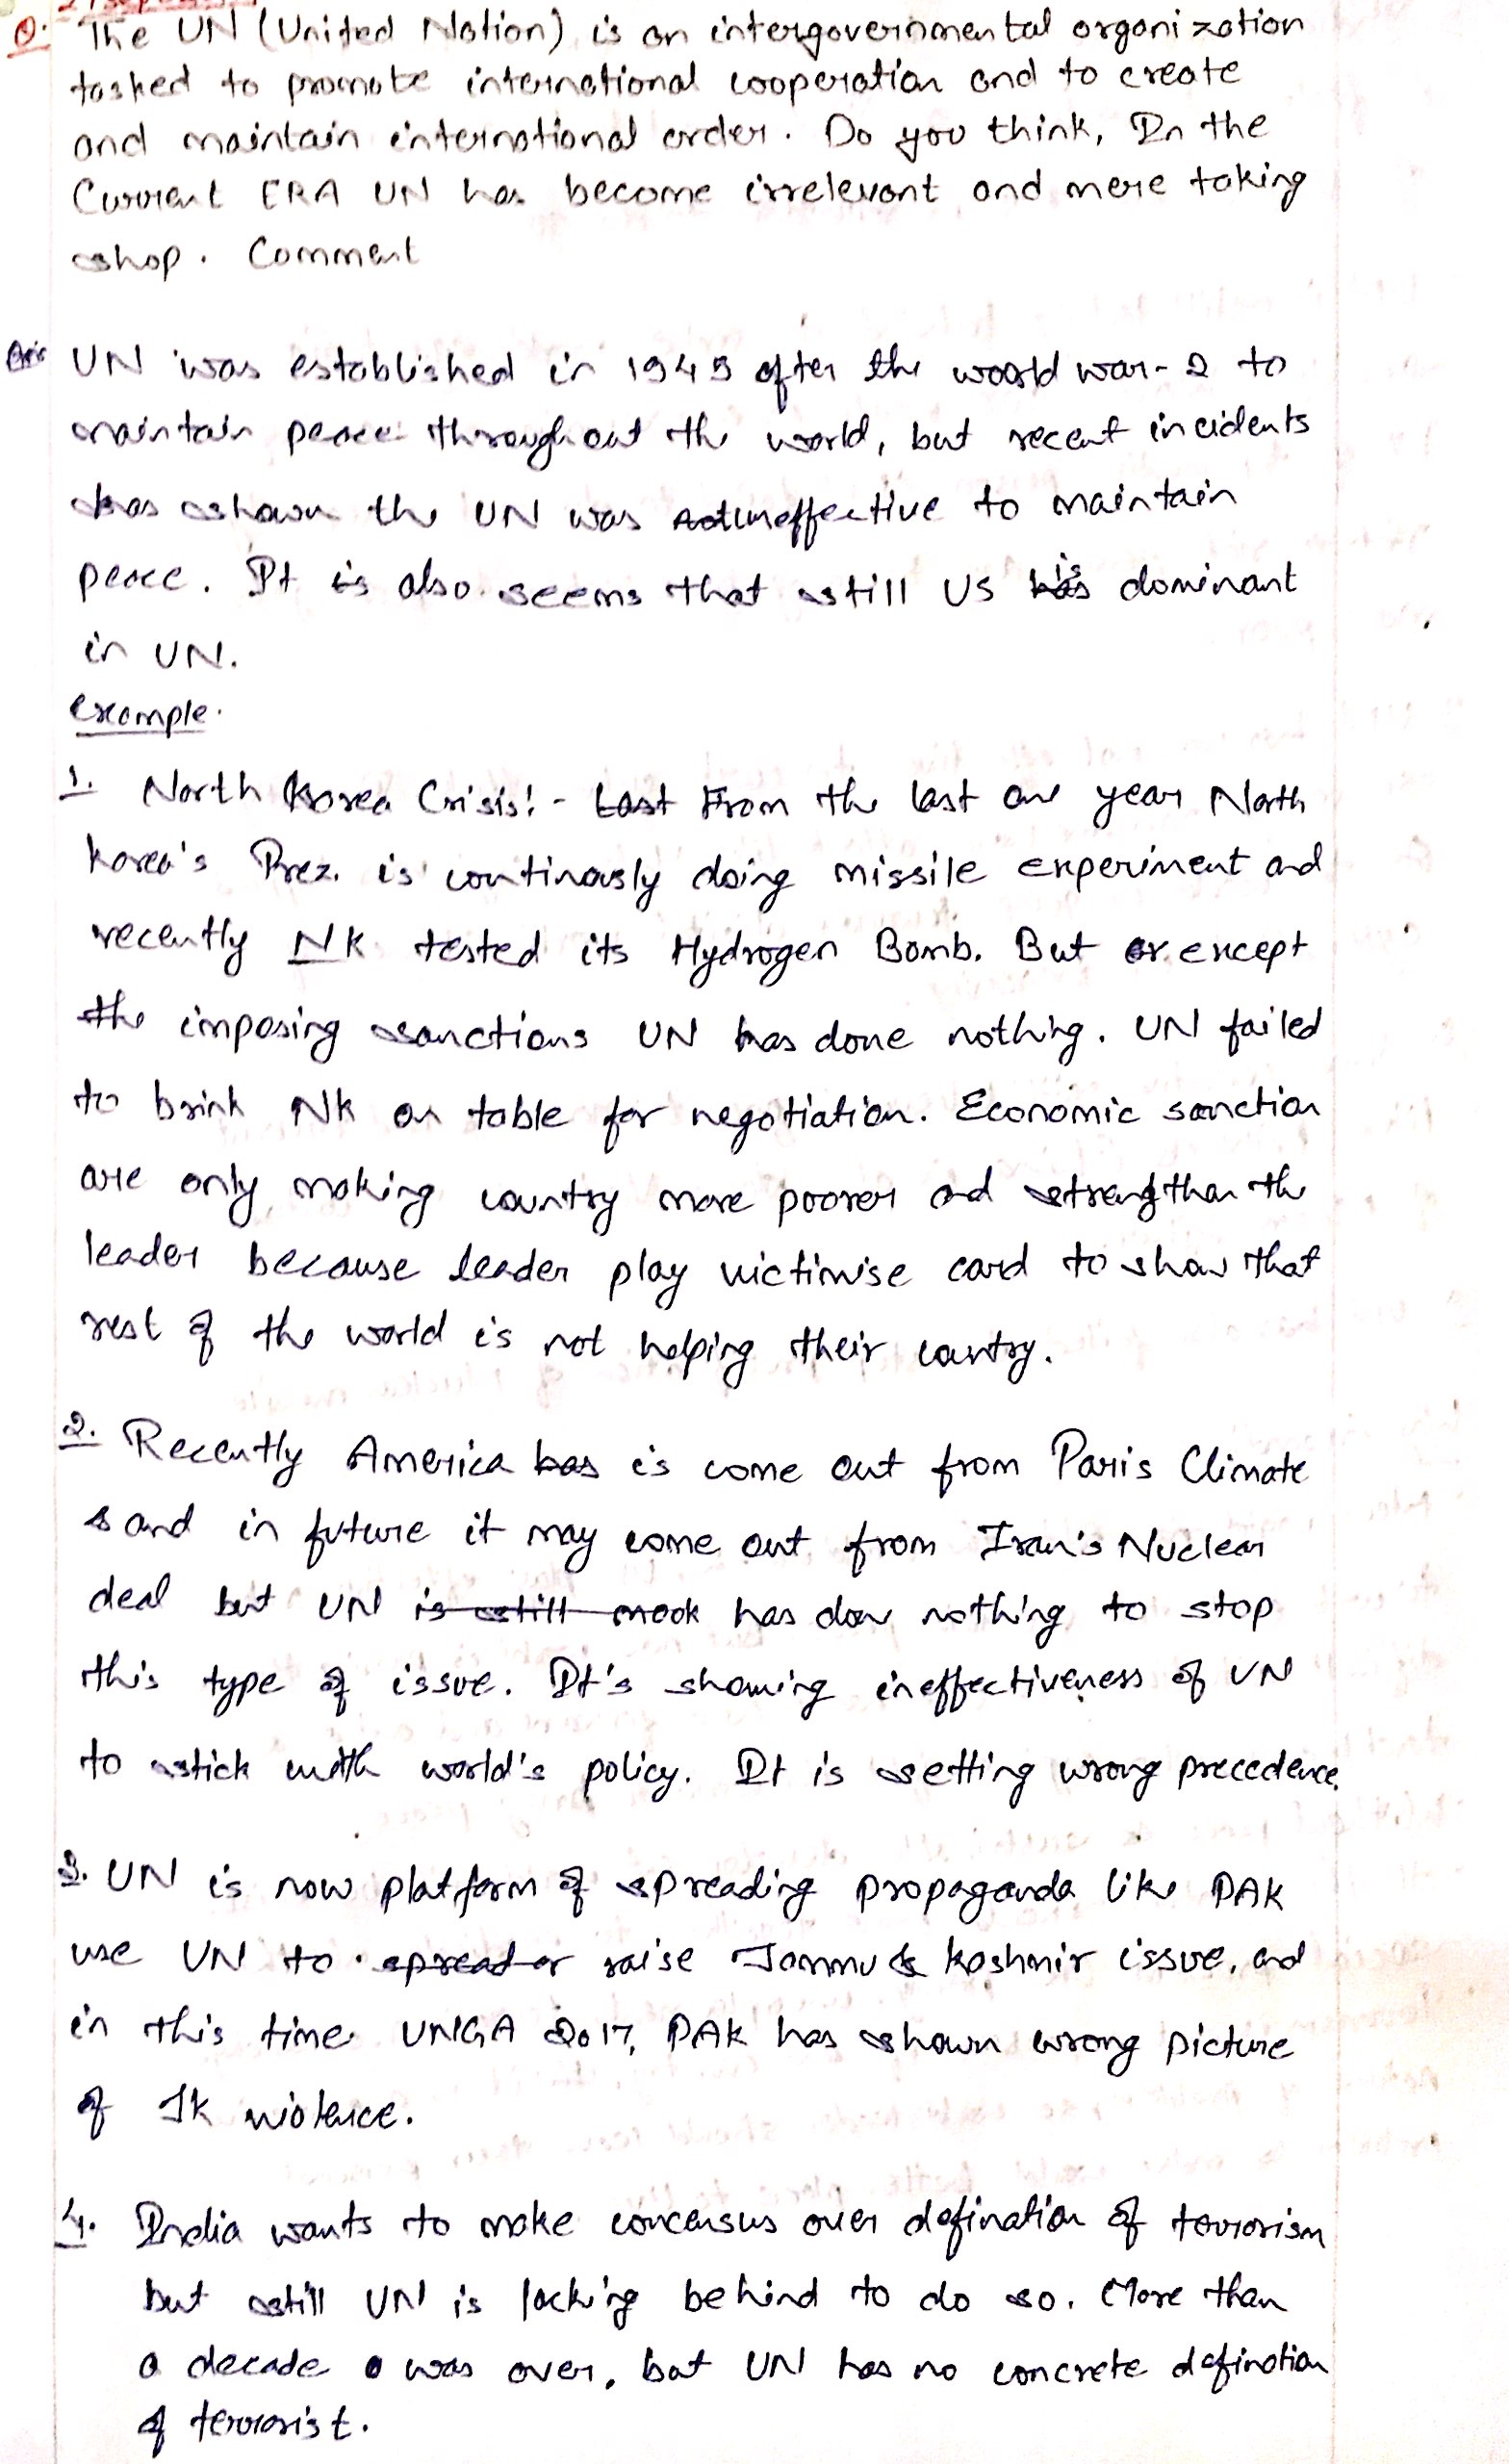 Q. The UN (United Nation) is an intergovernmental organization
tasked to promote international cooperation and to create
and maintain international order. Do you think, In the
Current ERA UN has become irrelevant and mere taking
shop. Comment
Ans UN was established in 1945 after the world war-2 to
maintain peace throughout the world, but recent incidents
has shown the UN was ineffective to maintain
peace. It is also seems that still US is dominant
in UN.
example.
1. North Korea Crisis:- Last From the last one year North
Korea's Prez. is continously doing missile experiment and
recently NK tested its Hydrogen Bomb. But or except
the imposing sanctions UN has done nothing. UN failed
to brink NK on table for negotiation. Economic sanction
are only making country more poorer and strengthan the
leader because leader play victimise card to show that
rest of the world is not helping their country.
2. Recently America has is come out from Paris Climate
& and in future it may come out from Iran's Nuclear
deal but UN is still mook has done nothing to stop
this type of issue. It's showing ineffectiveness of UN
to stick with world's policy. It is setting wrong precedence.
3. UN is now platform of spreading propaganda like PAK
use UN to spread or raise Jammu & Kashmir issue, and
in this time UNGA 2017, PAK has shown wrong picture
of JK violence.
4. India wants to make concensus over defination of terrorism
but still UN is lacking behind to do so. More than
a decade was over, but UN has no concrete defination
of terrorist.